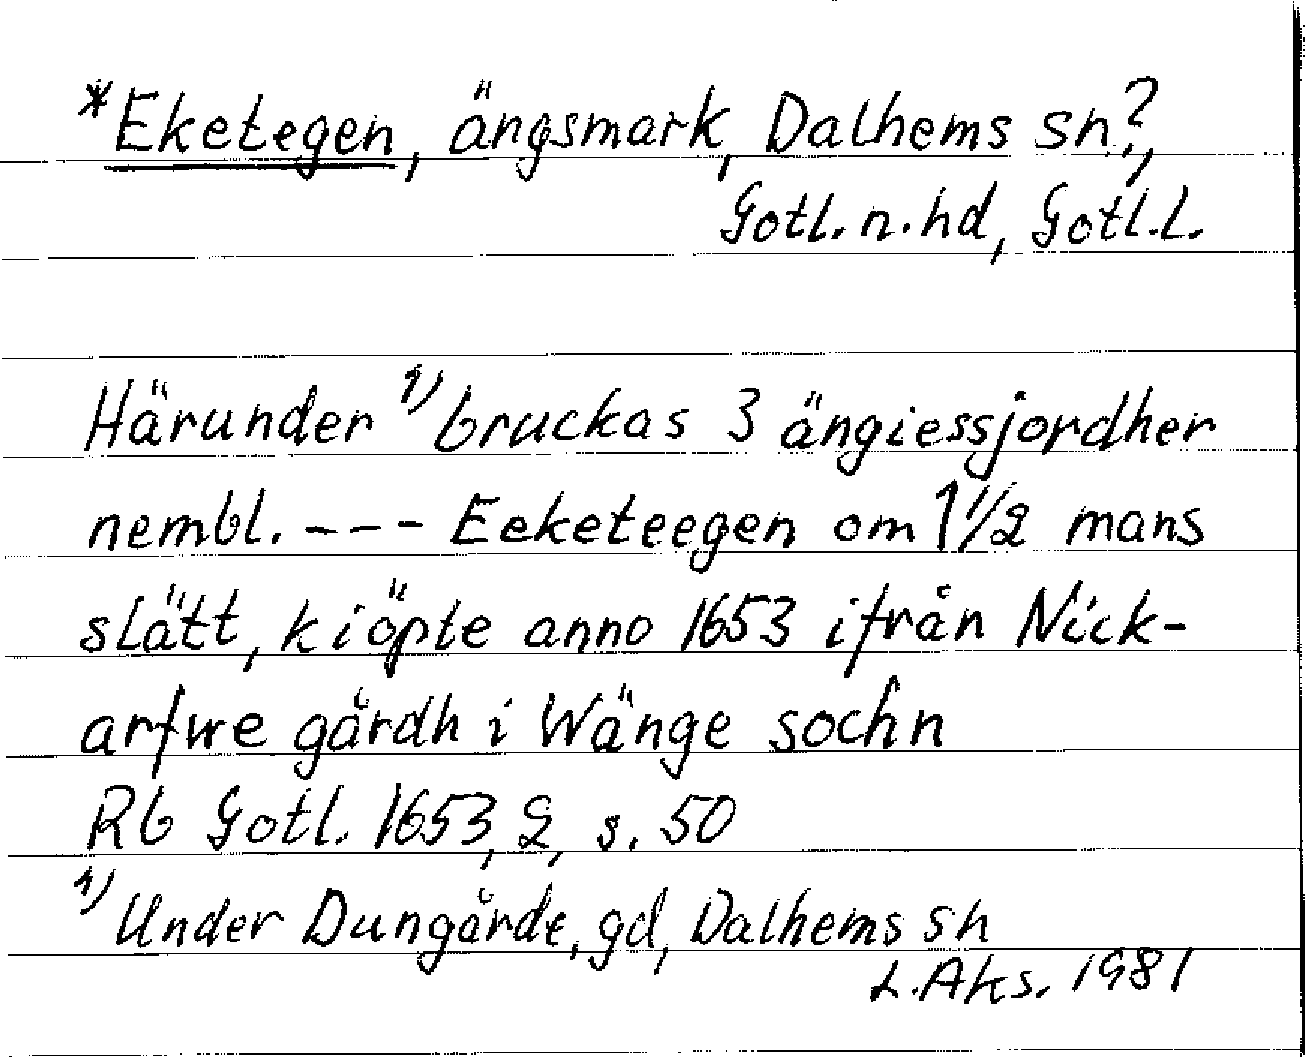 *Eketegen, ängsmark, Dalhems sn?,
Gotl. n. hd, Gotl. l.
Härunder 1) bruckas 3 ängiessjordher
nembl. --- Eeketeegen om 1 1/2 mans
slätt, kiöpte anno 1653 ifrån Nick-
arfwe gårdh i Wänge sochn
Rb Gotl. 1653, 2, s. 50
1) Under Dungårde, gd, Dalhems sn
L. Aks. 1981